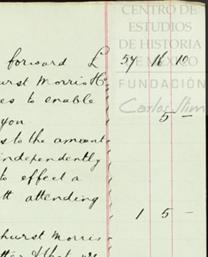 CENTRO DE
ESTUDIOS
DE HISTORIA
DE MÉXICO
FUNDACIÓN
Carlos Slim
forward £ 54 16 10
hurst Morris &C
es to enable
you 5 —
s to the amount
independently
to effect a
tt attending
1 5 —
hurst Morris